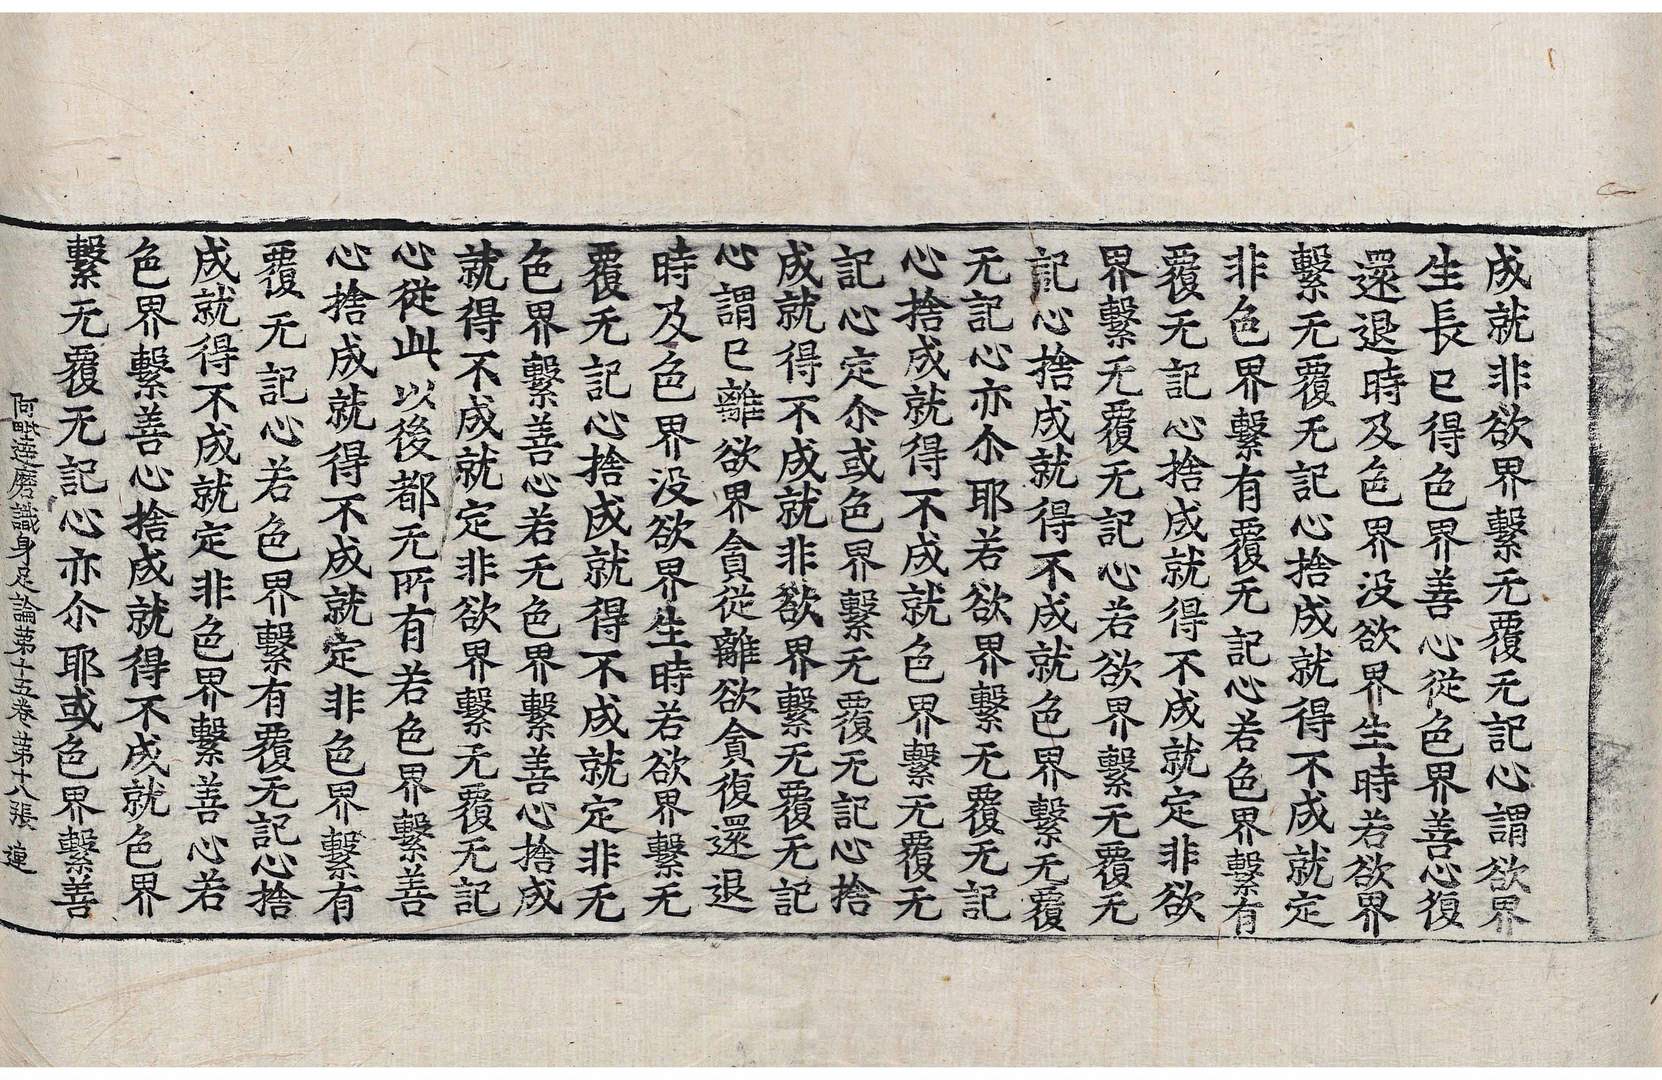 成就非欲界繫无覆无記心謂欲界
生長已得色界善心從色界善心復
還退時及色界没欲界生時若欲界
繫无覆无記心捨成就得不成就定
非色界繫有覆无記心若色界繫有
覆无記心捨成就得不成就定非欲
界繫无覆无記心若欲界繫无覆无
記心捨成就得不成就色界繫无覆
无記心亦尒耶若欲界繫无覆无記
心捨成就得不成就色界繫无覆无
記心定尒或色界繫无覆无記心捨
成就得不成就非欲界繫无覆无記
心謂已離欲界貪從離欲貪復還退
時及色界没欲界生時若欲界繫无
覆无記心捨成就得不成就定非无
色界繫善心若无色界繫善心捨成
就得不成就定非欲界繫无覆无記
心從此以後都无所有若色界繫善
心捨成就得不成就定非色界繫有
覆无記心若色界繫有覆无記心捨
成就得不成就定非色界繫善心若
色界繫善心捨成就得不成就色界
繫无覆无記心亦尒耶或色界繫善
阿毗達磨識身足論第十五卷 第十八張 運